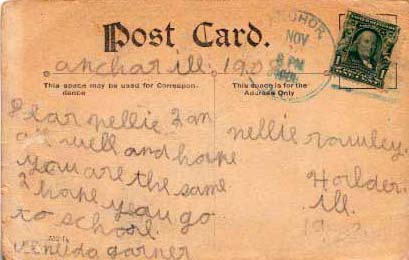 Post Card.
anchar ill. 190
This space may be used for Correspondence
This space is for the Address Only
ANCHOR
NOV
8 PM
Dear nellie I am
all well and hope
you are the same
I hope yeau go
to school.
garner
nellie rowley.
Holder
ill.
1